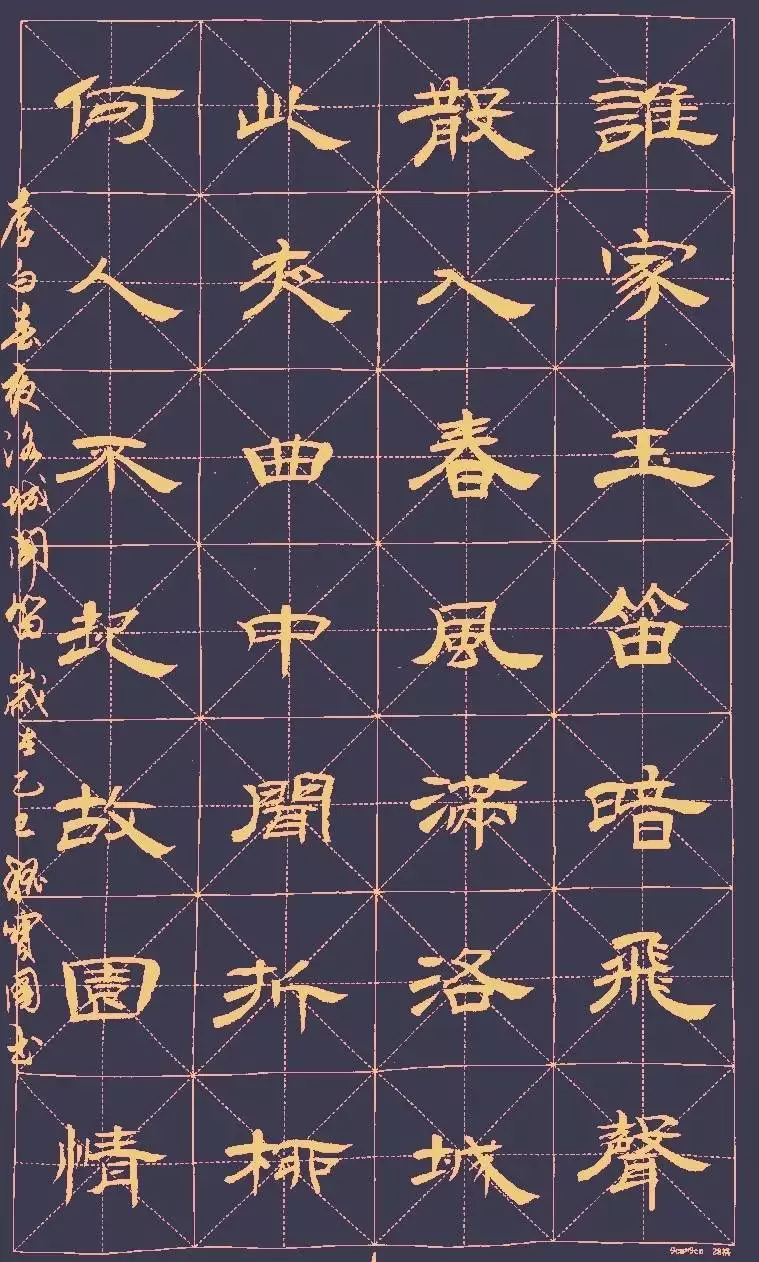 誰家玉笛暗飛聲
散入春風滿洛城
此夜曲中聞折柳
何人不起故園情
李白春夜洛城聞笛歲在乙巳 寶國书
9cm*9cm 28格